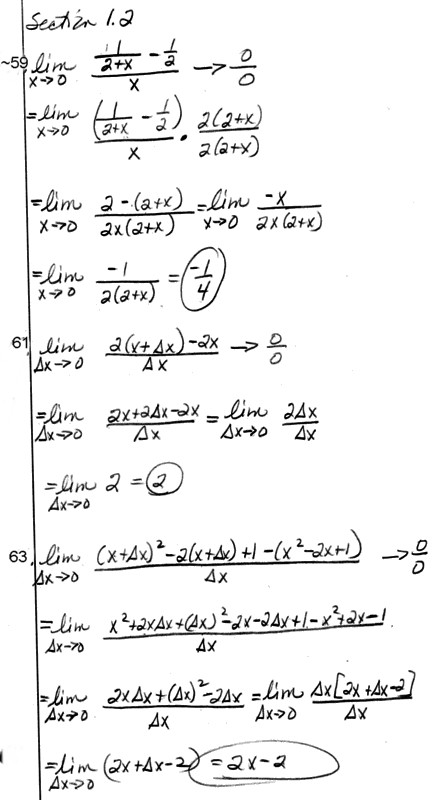 Section 1.2
~59. lim x→0 (1/(2+x) - 1/2)/x → 0/0
= lim x→0 (1/(2+x) - 1/2)/x · 2(2+x)/2(2+x)
= lim x→0 (2-(2+x))/(2x(2+x)) = lim x→0 -x/(2x(2+x))
= lim x→0 -1/(2(2+x)) = -1/4
61. lim Δx→0 (2(x+Δx)-2x)/Δx → 0/0
= lim Δx→0 (2x+2Δx-2x)/Δx = lim Δx→0 2Δx/Δx
= lim Δx→0 2 = 2
63. lim Δx→0 ((x+Δx)²-2(x+Δx)+1-(x²-2x+1))/Δx → 0/0
= lim Δx→0 (x²+2xΔx+(Δx)²-2x-2Δx+1-x²+2x-1)/Δx
= lim Δx→0 (2xΔx+(Δx)²-2Δx)/Δx = lim Δx→0 Δx[2x+Δx-2]/Δx
= lim Δx→0 (2x+Δx-2) = 2x-2